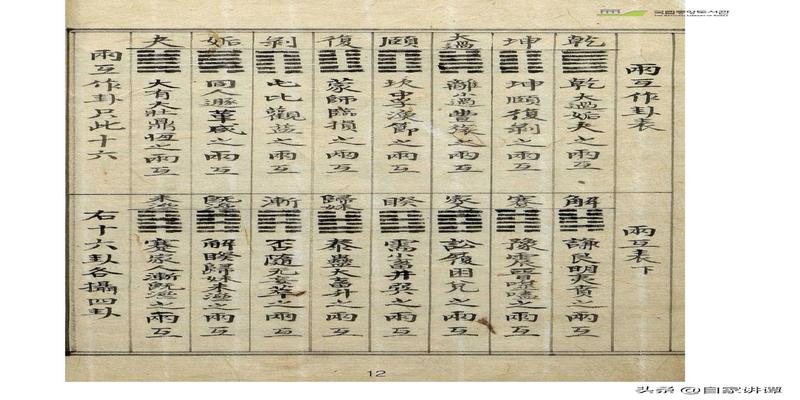 국립중앙도서관
THE NATIONAL LIBRARY OF KOREA
兩互作卦表
乾
乾大過姤夬之兩互
坤
坤頤復剝之兩互
大過
離小過豐旅之兩互
頤
坎中孚渙節之兩互
復
蒙師臨損之兩互
剝
屯比觀益之兩互
姤
同遯革咸之兩互
夬
大有大壯鼎恆之兩互
兩互作卦只此十六
兩互表下
解
謙艮明夷賁之兩互
蹇
豫震晋噬嗑之兩互
家
訟履困兌之兩互
睽
需小畜井巽之兩互
歸妹
泰蠱大畜升之兩互
漸
否隨无妄萃之兩互
既濟
解睽歸妹未濟之兩互
未濟
蹇家漸既濟之兩互
右十六卦各攝四卦
12
头条 @自家讲谭